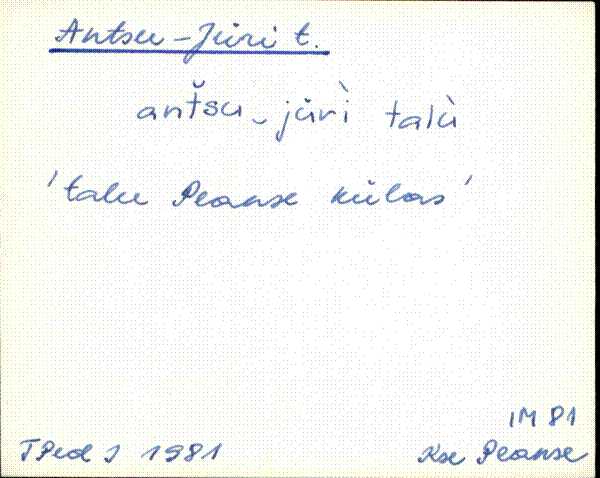 Antsu-Jüri t.
ant̆su‿jürì̬ talù
'talu Peanse külas'
IM 81
TPedI 1981
Kse Peanse